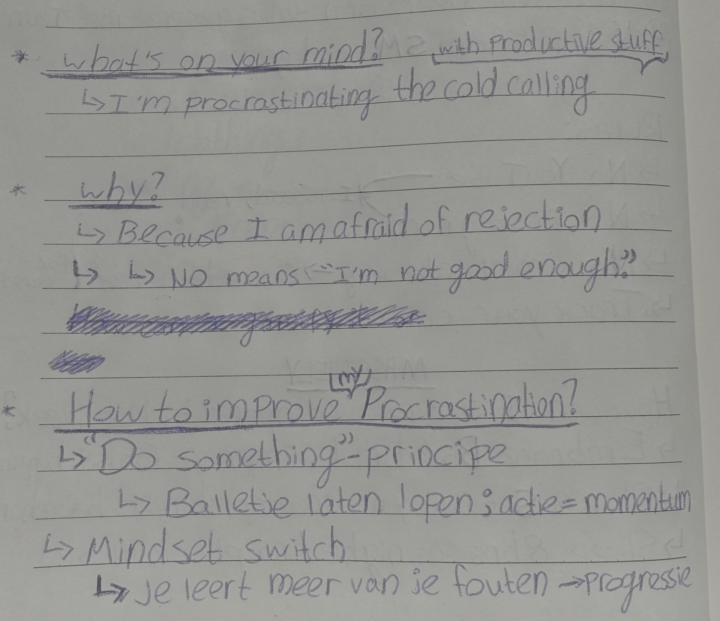 * What's on your mind? with productive stuff
↳ I'm procrastinating the cold calling
* Why?
↳ Because I am afraid of rejection
↳ ↳ NO means "I'm not good enough."
my
* How to improve Procrastination?
↳ "Do something"-principe
↳ Balletje laten lopen; actie = momentum
↳ Mindset switch
↳ Je leert meer van je fouten → progressie